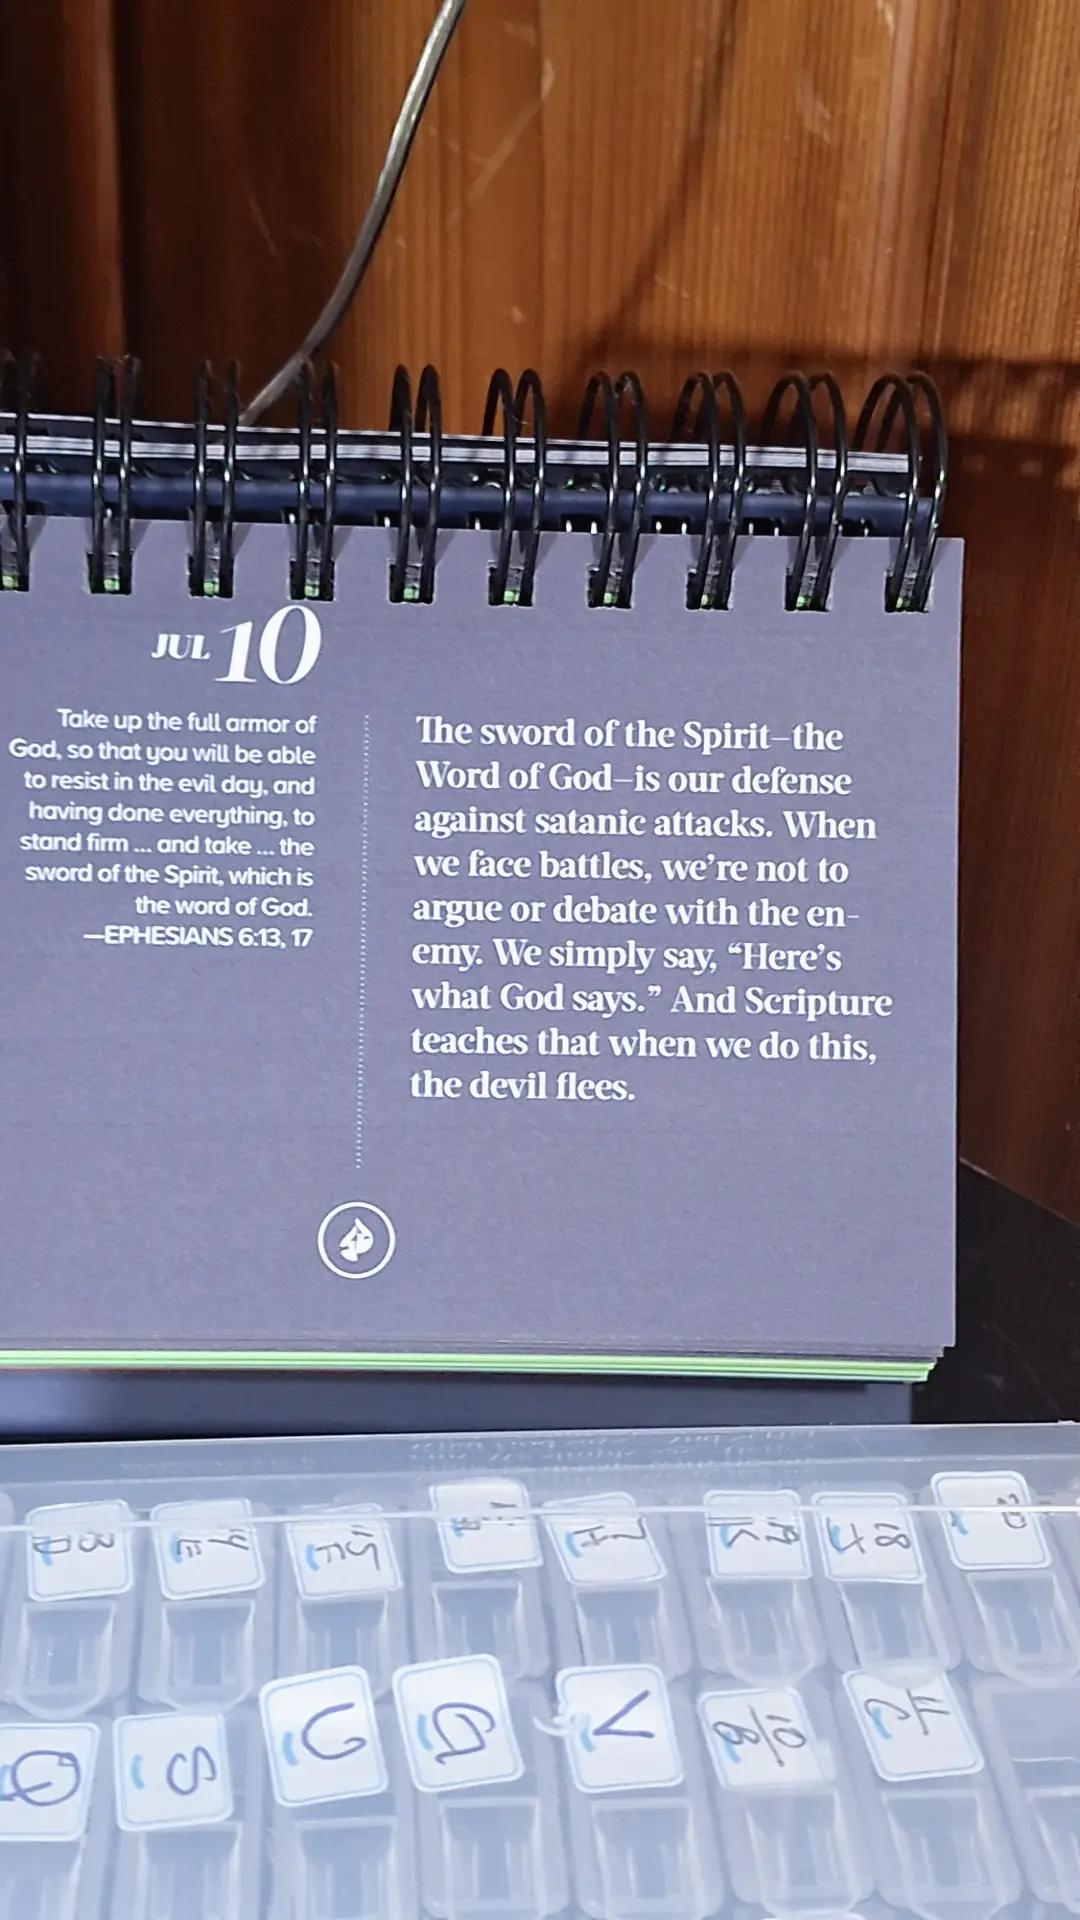 JUL 10
Take up the full armor of
God, so that you will be able
to resist in the evil day, and
having done everything, to
stand firm ... and take ... the
sword of the Spirit, which is
the word of God.
—EPHESIANS 6:13, 17
The sword of the Spirit–the
Word of God–is our defense
against satanic attacks. When
we face battles, we’re not to
argue or debate with the en-
emy. We simply say, “Here’s
what God says.” And Scripture
teaches that when we do this,
the devil flees.